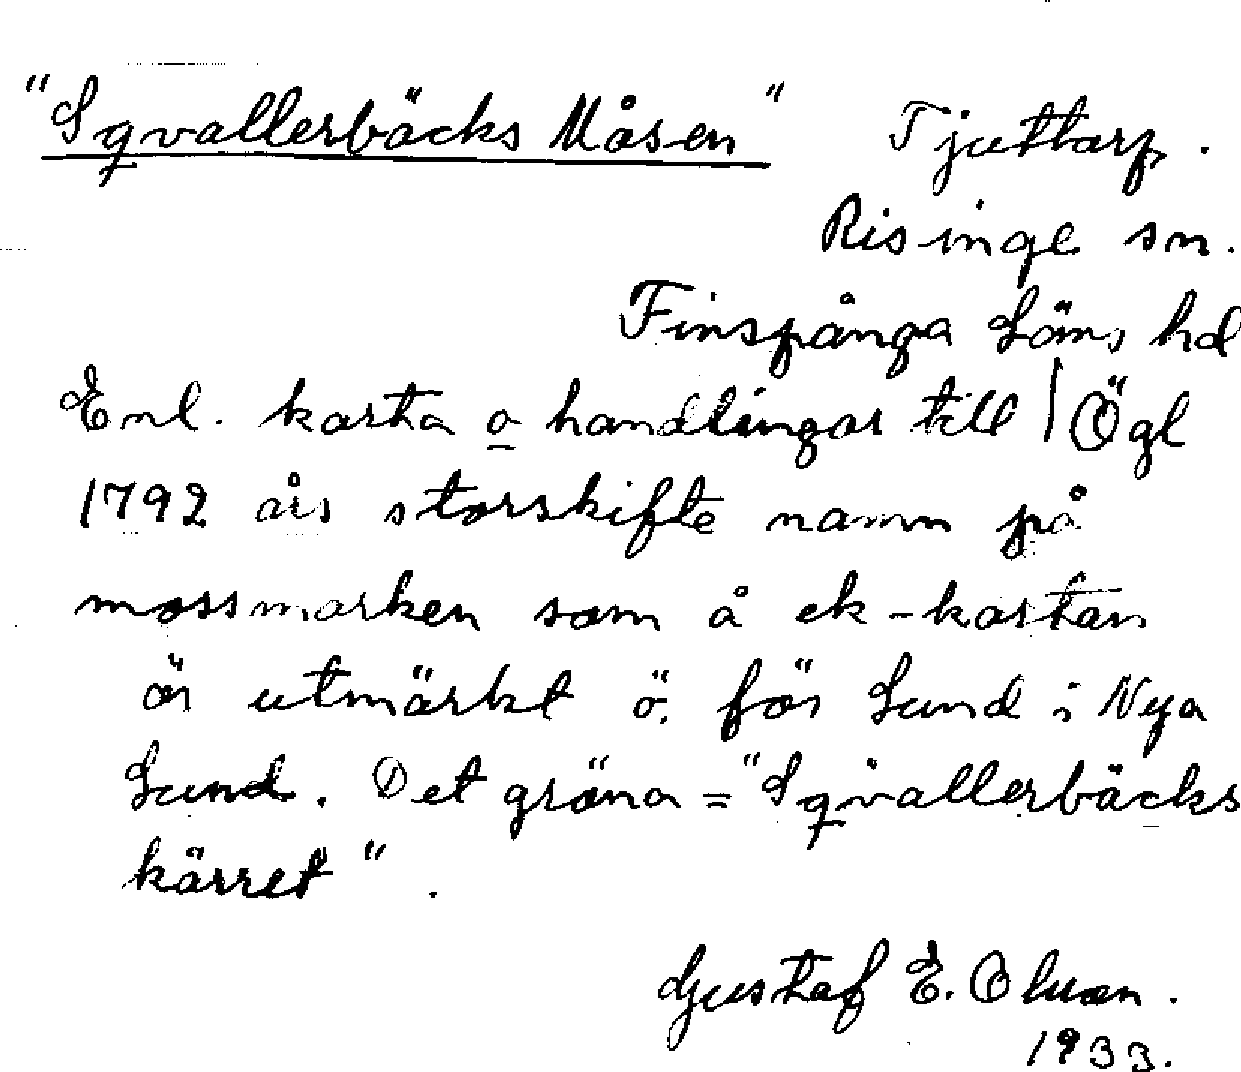 "Sqvallerbäcks Måsen" Tjuttorp.
Risinge sn.
Finspånga Läns hd
Enl. karta o handlingar till | Ögl
1792 års storskifte namn på
mossmarken som å ek-kartan
är utmärkt ö. för Lund i Nya
Lund. Det gröna = "Sqvallerbäcks
kärret".
Gustaf E.
1933.